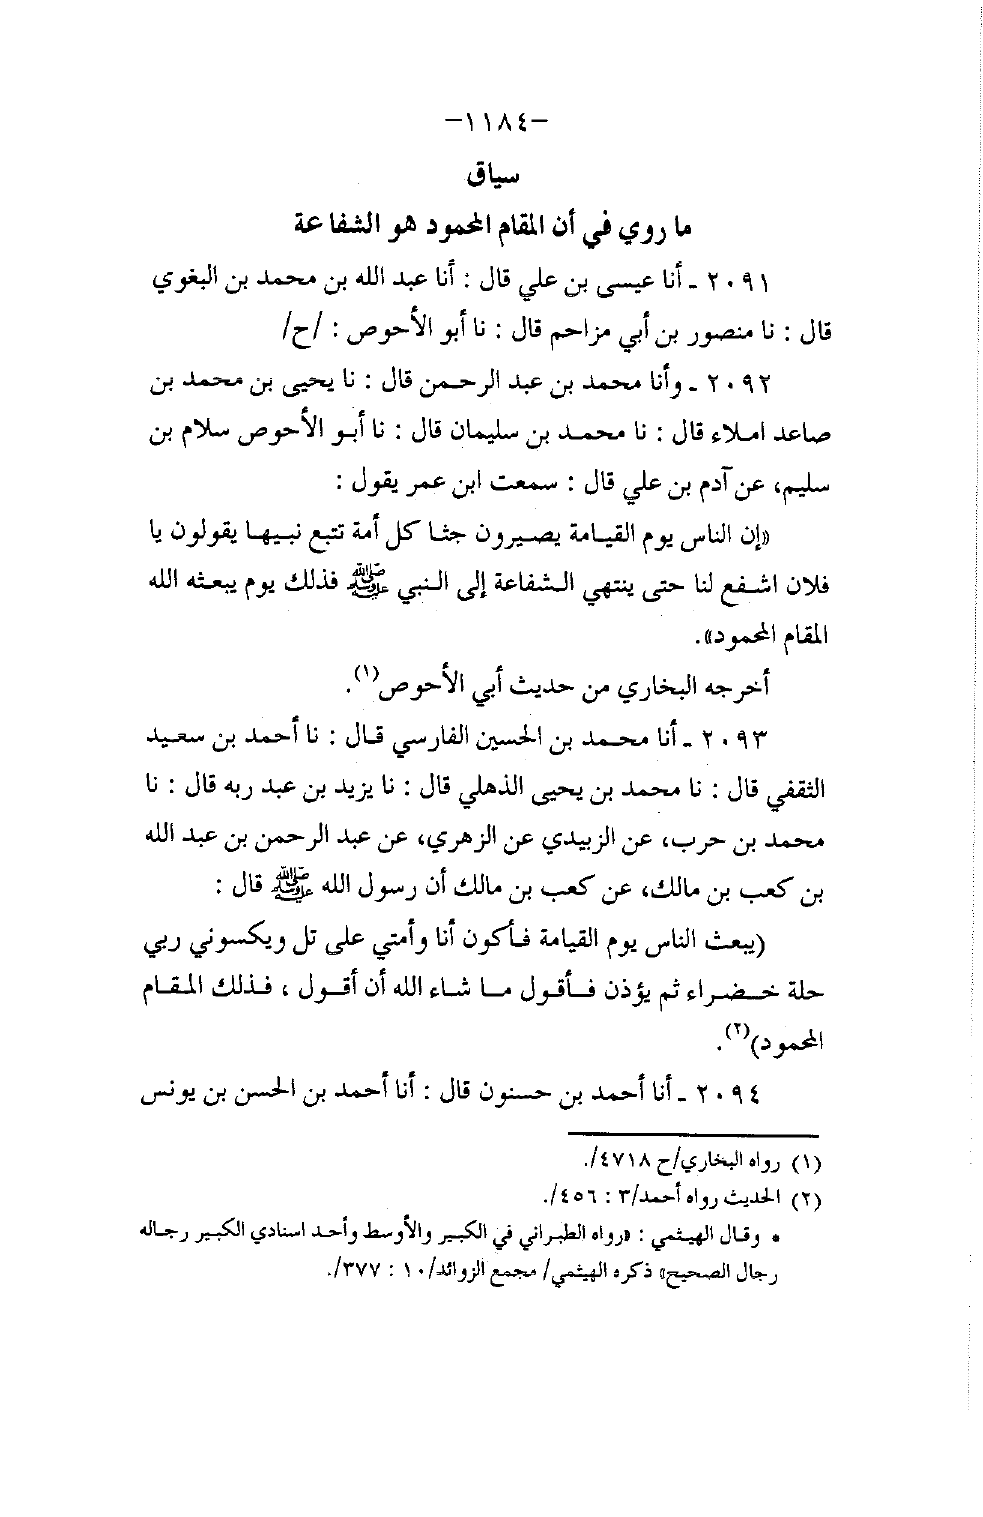 -١١٨٤-
سياق
ما روي في أن المقام المحمود هو الشفاعة
٢٠٩١ ـ أنا عيسى بن علي قال : أنا عبد الله بن محمد بن البغوي
قال : نا منصور بن أبي مزاحم قال : نا أبو الأحوص : /ح/
٢٠٩٢ ـ وأنا محمد بن عبد الرحمن قال : نا يحيى بن محمد بن
صاعد املاء قال : نا محمد بن سليمان قال : نا أبو الأحوص سلام بن
سليم، عن آدم بن علي قال : سمعت ابن عمر يقول :
«إن الناس يوم القيامة يصيرون جثا كل أمة تتبع نبيها يقولون يا
فلان اشفع لنا حتى ينتهي الشفاعة إلى النبي ﷺ فذلك يوم يبعثه الله
المقام المحمود».
أخرجه البخاري من حديث أبي الأحوص(١).
٢٠٩٣ ـ أنا محمد بن الحسين الفارسي قال : نا أحمد بن سعيد
الثقفي قال : نا محمد بن يحيى الذهلي قال : نا يزيد بن عبد ربه قال : نا
محمد بن حرب، عن الزبيدي عن الزهري، عن عبد الرحمن بن عبد الله
بن كعب بن مالك، عن كعب بن مالك أن رسول الله ﷺ قال :
(يبعث الناس يوم القيامة فأكون أنا وأمتي على تل ويكسوني ربي
حلة خضراء ثم يؤذن فأقول ما شاء الله أن أقول ، فذلك المقام
المحمود)(٢).
٢٠٩٤ ـ أنا أحمد بن حسنون قال : أنا أحمد بن الحسن بن يونس
(١) رواه البخاري/ح ٤٧١٨/.
(٢) الحديث رواه أحمد/٣ : ٤٥٦/.
• وقال الهيثمي : «رواه الطبراني في الكبير والأوسط وأحد اسنادي الكبير رجاله
رجال الصحيح» ذكره الهيثمي/ مجمع الزوائد/١٠ : ٣٧٧/.